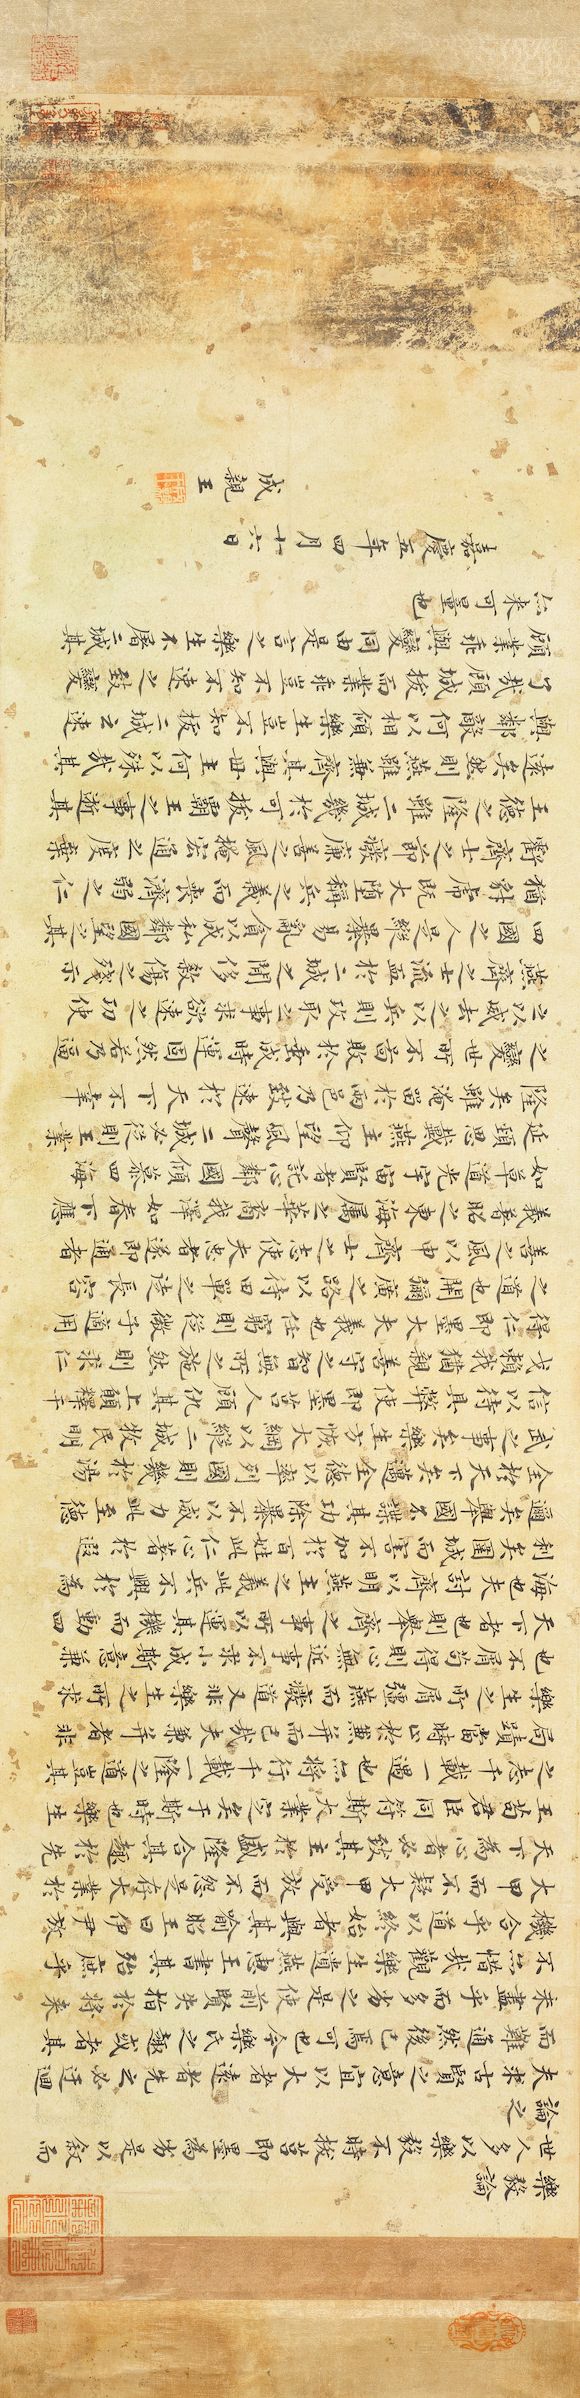 樂毅論
世人多以樂毅不時拔莒即墨為劣是以叙而
論之
夫求古賢之意宜以大者遠者先之必迂迴
而難通然後已焉可也今樂氏之趣或者其
未盡乎而多劣之是使前賢失指於將來
不亦惜哉觀樂生遺燕惠王書其殆庶乎
機合乎道以終始者與其喻昭王曰伊尹放
大甲而不疑大甲受放而不怨是存大業於
天下為心者必致其主於盛隆合其趣於先
王苟君臣同符斯大業定矣于斯時也樂生
之志千載一遇也亦將行千載一隆之道豈其
局蹟當時止於兼并而已哉夫兼并者非
樂生之所屑彊燕而廢道又非樂生之所求
也不屑苟得則心無近事不求小成斯意兼
天下者也則舉齊之事所以運其機而動四
海也夫討齊以明燕主之義此兵不興於為
利矣圍城而害不加於百姓此仁心著於遐
邇矣舉國不謀其功除暴不以威力此至德
全於天下矣邁全德以率列國則幾於湯
武之事矣樂生方恢大綱以縱二城牧民明
信以待其弊使即墨莒人顧仇其上願釋干
戈賴我猶親善守之智無所之施然則求仁
得仁即墨大夫之義也任窮則從微子適周
之道也開彌廣之路以待田單之徒長容
善之風以申齊士之志使夫忠者遂節通者
義著昭之東海屬之華裔我澤如春下應
如草道光宇宙賢者託心鄰國傾慕四海
延頸思戴燕主仰望風聲二城必從則王業
隆矣雖淹留於兩邑乃致速於天下不幸
之變世所不圖敗於垂成時運固然若乃逼
之以威劫之以兵則攻取之事求欲速之功使
燕齊之士流血於二城之間侈殺傷之殘示
四國之人是縱暴易亂貪以成私鄰國望之其
猶豺虎既大墮稱兵之義而喪濟弱之仁
虧齊士之節廢廉善之風掩宏通之度棄
王德之隆雖二城幾於可拔霸王之事逝其
遠矣然則燕雖兼齊其與世主何以殊哉其
與鄰敵何以相傾樂生豈不知拔二城之速
了哉顧城拔而業乖豈不知不速之致變
顧業乖與變同由是言之樂生不屠二城其
亦未可量也
嘉慶五年四月十六日
成親王